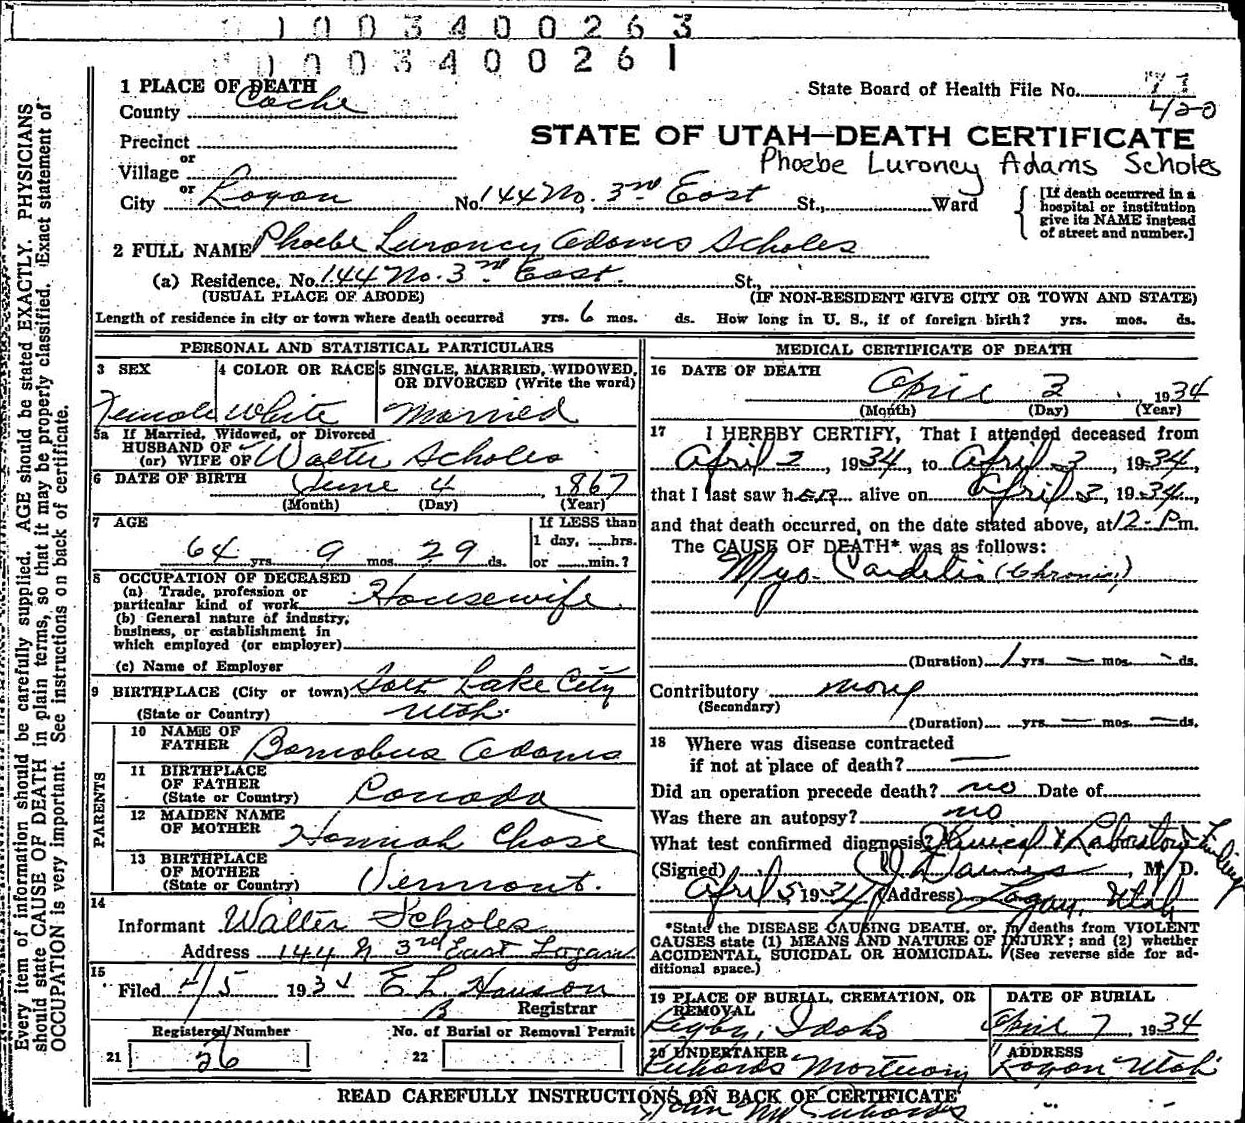 1003400263
1003400261
1 PLACE OF DEATH
County Cache
State Board of Health File No. 77
420
Precinct
STATE OF UTAH—DEATH CERTIFICATE
or
Phoebe Luroncy Adams Scholes
Village
or
City Logan No. 144 No. 3rd East St., Ward
[If death occurred in a hospital or institution give its NAME instead of street and number.]
2 FULL NAME Phoebe Luroncy Adams Scholes
(a) Residence. No. 144 No. 3rd East. St.,
(USUAL PLACE OF ABODE) (IF NON-RESIDENT GIVE CITY OR TOWN AND STATE)
Length of residence in city or town where death occurred yrs. 6 mos. ds. How long in U. S., if of foreign birth? yrs. mos. ds.
PERSONAL AND STATISTICAL PARTICULARS
3 SEX 4 COLOR OR RACE 5 SINGLE, MARRIED, WIDOWED,
OR DIVORCED (Write the word)
Female White Married
5a If Married, Widowed, or Divorced
HUSBAND OF
(or) WIFE OF Walter Scholes
6 DATE OF BIRTH June 4, 1867
(Month) (Day) (Year)
7 AGE If LESS than
1 day, hrs.
64 yrs. 9 mos. 29 ds. or min.?
8 OCCUPATION OF DECEASED
(a) Trade, profession or
particular kind of work Housewife
(b) General nature of industry,
business, or establishment in
which employed (or employer)
(c) Name of Employer
9 BIRTHPLACE (City or town) Salt Lake City
(State or Country) Utah
PARENTS
10 NAME OF
FATHER Barnabus Adams
11 BIRTHPLACE
OF FATHER
(State or Country) Canada
12 MAIDEN NAME
OF MOTHER Hannah Chase
13 BIRTHPLACE
OF MOTHER
(State or Country) Vermont.
14
Informant Walter Scholes
Address 144 N 3rd East Logan
15
Filed 4/5 1934 E L Hanson
Registrar
Registered Number No. of Burial or Removal Permit
21 26 22
MEDICAL CERTIFICATE OF DEATH
16 DATE OF DEATH
April 3, 1934
(Month) (Day) (Year)
17 I HEREBY CERTIFY, That I attended deceased from
April 2, 1934, to April 3, 1934,
that I last saw her alive on April 3, 1934,
and that death occurred, on the date stated above, at 12 P.m.
The CAUSE OF DEATH* was as follows:
Myo-Cardetis (Chronic)
(Duration) 1 yrs. — mos. — ds.
Contributory
(Secondary)
(Duration) yrs. — mos. — ds.
18 Where was disease contracted
if not at place of death? —
Did an operation precede death? no Date of
Was there an autopsy? no
What test confirmed diagnosis? Clinical & Laboratory Findings
(Signed) M. D.
April 5 1934 (Address) Logan, Utah
*State the DISEASE CAUSING DEATH, or, in deaths from VIOLENT
CAUSES state (1) MEANS AND NATURE OF INJURY; and (2) whether
ACCIDENTAL, SUICIDAL OR HOMICIDAL. (See reverse side for additional space.)
19 PLACE OF BURIAL, CREMATION, OR DATE OF BURIAL
REMOVAL
Rigby, Idaho April 7, 1934
20 UNDERTAKER ADDRESS
Mortuary Logan Utah
READ CAREFULLY INSTRUCTIONS ON BACK OF CERTIFICATE
Every item of information should be carefully supplied. AGE should be stated EXACTLY. PHYSICIANS
should state CAUSE OF DEATH in plain terms, so that it may be properly classified. Exact statement of
OCCUPATION is very important. See instructions on back of certificate.